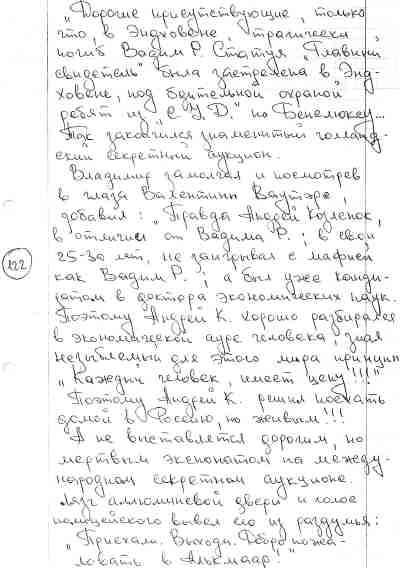 "Дорогие присутствующие, только
что, в Эндховене, трагически
погиб Вадим Р. Статуя "Главный
свидетель" была застрелена в Энд-
ховене, под бдительной охраной
ребят из "С.У.Д." по Бенелюксу...
Так закончился знаменитый голланд-
ский секретный аукцион.
Владимир замолчал и посмотрев
в глаза Валентины Ваутэрс,
добавил: "Правда Андрей Козленок,
в отличии от Вадима Р., в свои
25-30 лет, не заигрывал с мафией
как Вадим Р., а был уже канди-
122
датом в доктора экономических наук.
Поэтому Андрей К. хорошо разбирался
в экономической ауре человека, зная
незыблемый для этого мира принцип
"Каждый человек, имеет цену!!!"
Поэтому Андрей К. решил поехать
домой в Россию, но живым!!!
А не выставляется дорогим, но
мертвым экспонатом на между-
народном секретном аукционе.
Лязг аллюминевой двери и голос
полицейского вывел его из раздумья:
"Приехали. Выходи. Добро пожа-
ловать в Алькмаар!"